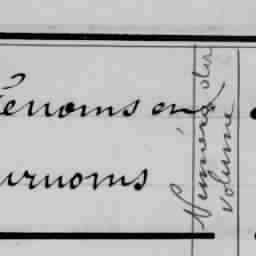 énoms ou
urnoms
Numéro du
volume